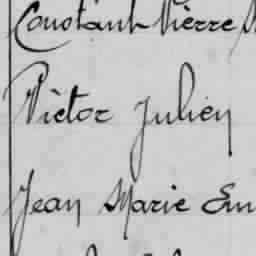 Constant Pierre
Victor Julien
Jean Marie Em